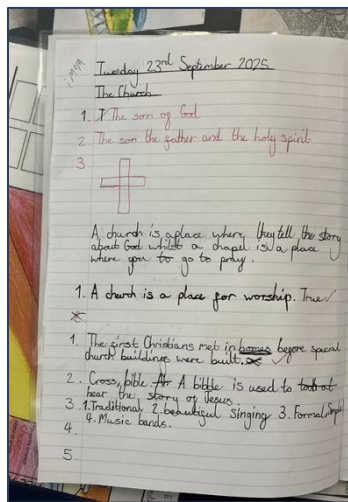 Tuesday 23rd September 2025
The Church
1. The son of God
2. The son the father and the holy spirit
3
A church is a place where they tell the story
about God whilst a chapel is a place
where you to go to pray.
1. A church is a place for worship. True
1. The first Christians met in homes before special
church buildings were built.
2. Cross, bible A bible is used to
hear the story of Jesus
3 1. Traditional 2. beautiful singing 3. Formal Simple
4. Music bands.
4.
5